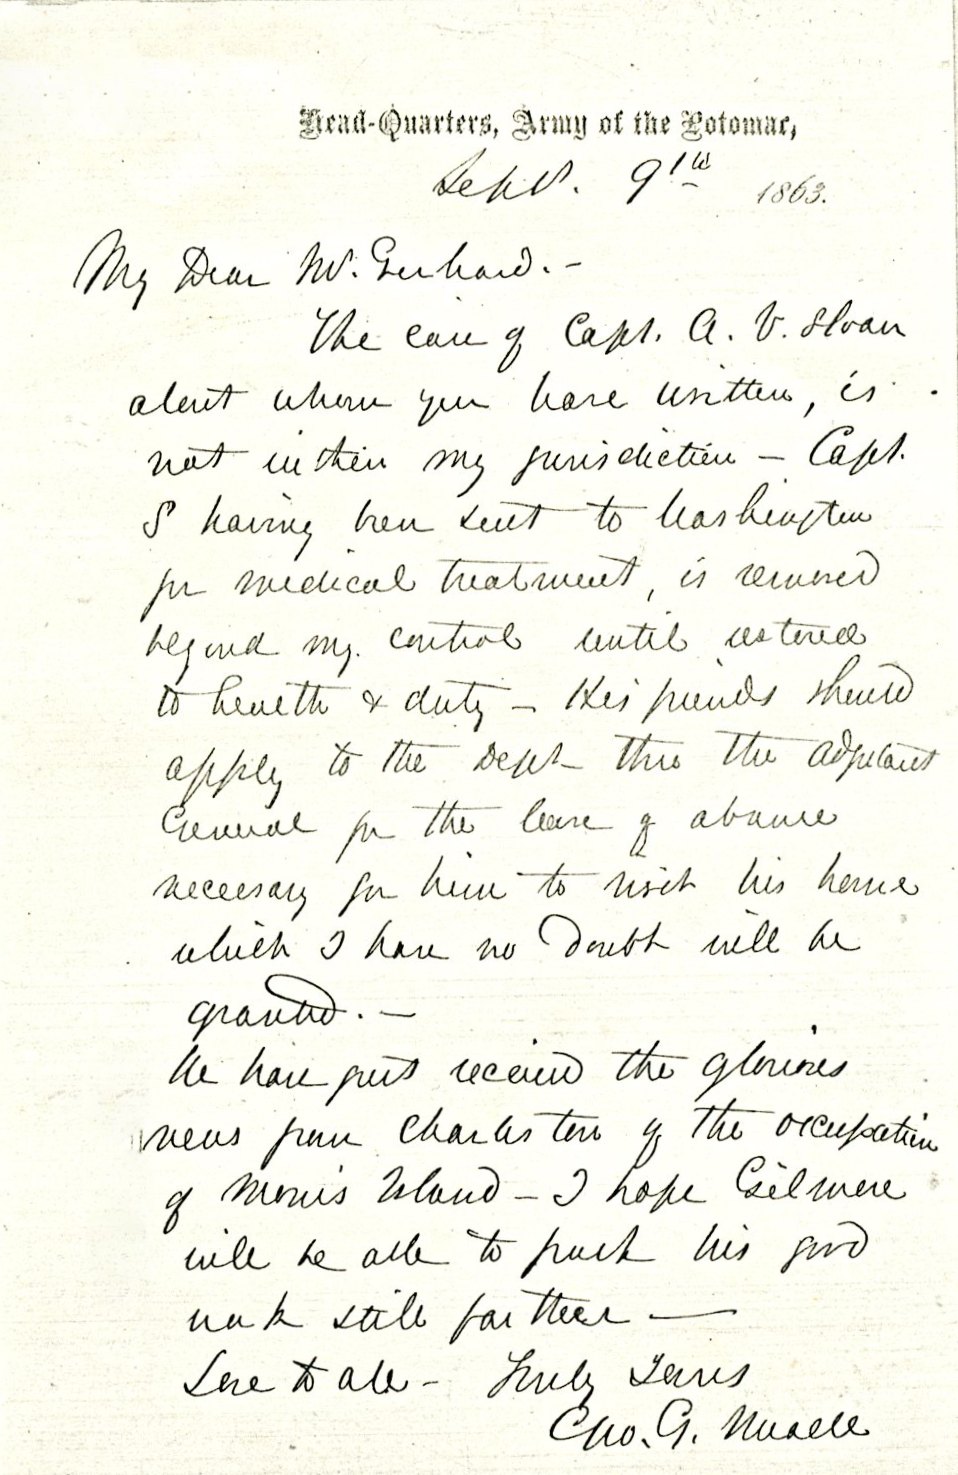 Head-Quarters, Army of the Potomac,
Sept. 9th 1863.
My Dear Mr. Gerhard. -
The case of Capt. A. V. Sloan
about whom you have written, is
not within my jurisdiction - Capt.
S having been sent to Washington
for medical treatment, is removed
beyond my control until restored
to health & duty - His friends should
apply to the Dept thro the Adjutant
General for the leave of absence
necessary for him to visit his home
which I have no doubt will be
granted. -
We have just received the glorious
news from Charleston of the occupation
of Morris Island - I hope Gilmore
will be able to push his good
work still farther -
Love to all - Truly Yours
Geo. G. Meade